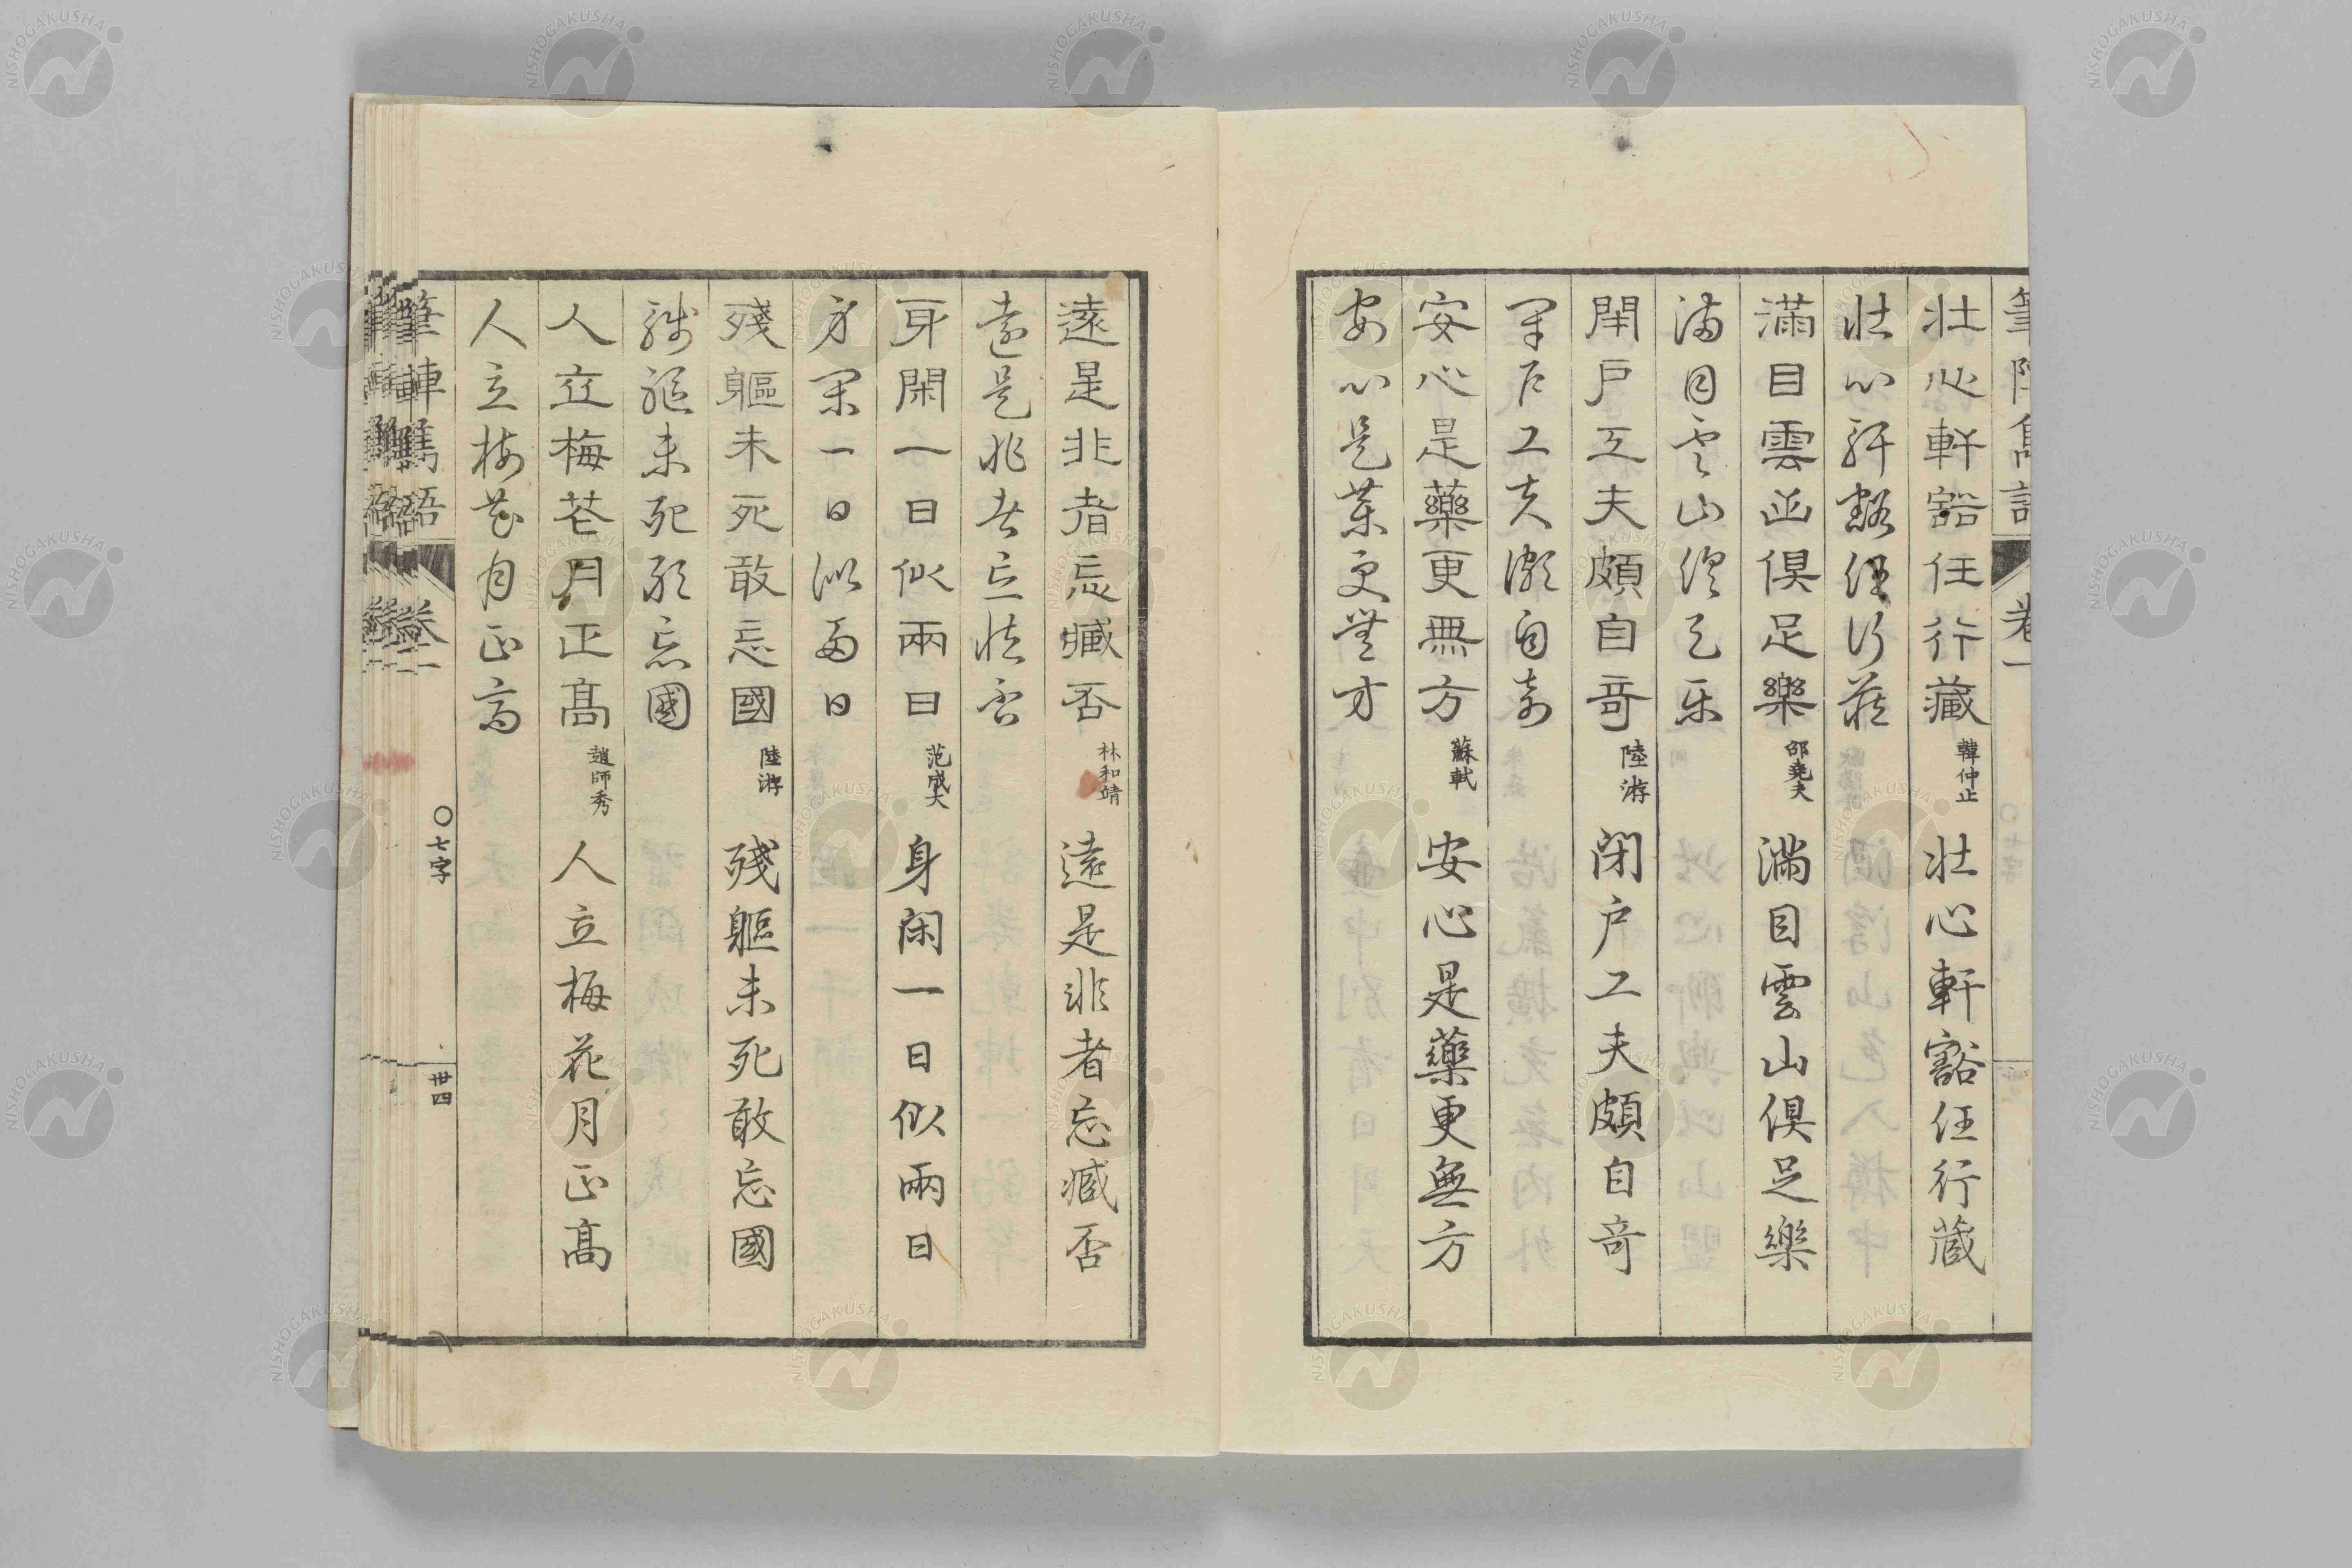 壮心軒豁任行藏 韓仲止 壮心軒豁任行蔵
壮心軒豁任行蔵
滿目雲山俱足樂 邵堯夫 滿目雲山俱足樂
満目雲山俱足樂
閉戸工夫頗自竒 陸游 閉户工夫頗自竒
閉戸工夫頗自竒
安心是藥更無方 蘇軾 安心是藥更無方
安心是藥更無方
遠是非者忘臧否 林和靖 遠是非者忘臧否
遠是非者忘臧否
身閑一日似兩日 范成大 身閑一日似兩日
身閑一日似兩日
殘軀未死敢忘國 陸游 殘軀未死敢忘國
殘軀未死敢忘國
人立梅花月正髙 趙師秀 人立梅花月正髙
人立梅花月正高
筆陣雋語 卷一 〇七字 卅四
NISHOGAKUSHA